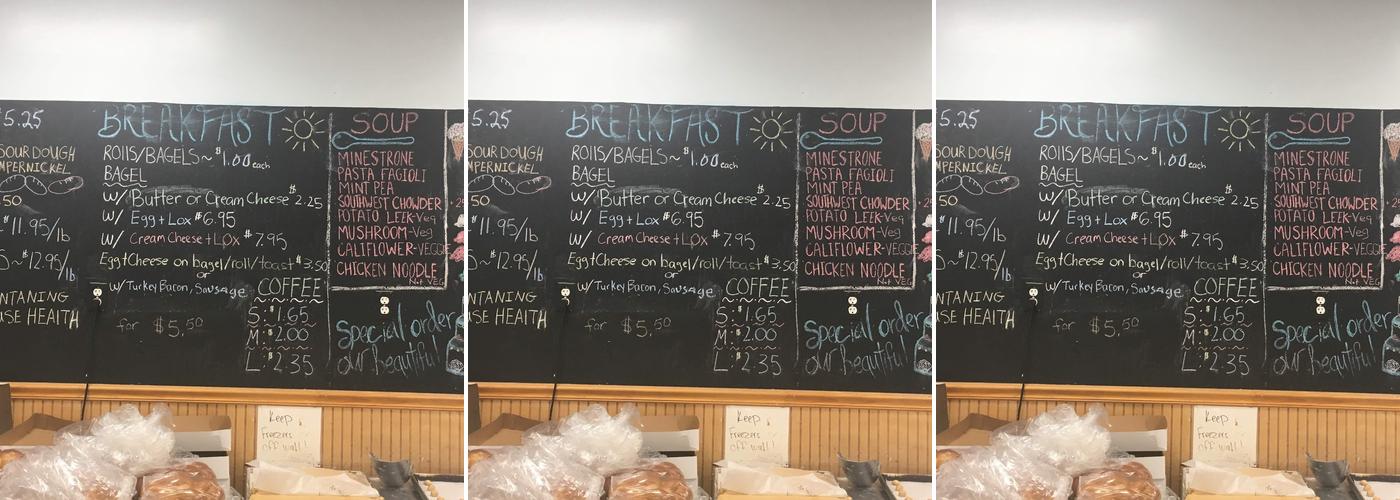 5.25
SOUR DOUGH
MPERNICKEL
50
$11.95/lb
~$12.95/lb
NTANING
USE HEALTH
BREAKFAST
ROllS/BAGELS~$1.00 each
BAGEL
w/ Butter or Cream Cheese $2.25
w/ Egg+Lox $6.95
w/ Cream Cheese+LOx $7.95
Egg+Cheese on bagel/roll/toast $3.50
or
w/Turkey Bacon, Sausage
for $5.50
COFFEE
S:$1.65
M:$2.00
L:$2.35
SOUP
MINESTRONE
PASTA FAGIOLI
MINT PEA
SOUTHWEST CHOWDER
POTATO LEEK-Veg
MUSHROOM-Veg
CALIFLOWER-VEGGE
CHICKEN NOODLE
Not VEG
Special order
our beautiful
Keep
Freezers
off wall!
5.25
SOUR DOUGH
MPERNICKEL
50
$11.95/lb
~$12.95/lb
NTANING
USE HEALTH
BREAKFAST
ROllS/BAGELS~$1.00 each
BAGEL
w/ Butter or Cream Cheese $2.25
w/ Egg+Lox $6.95
w/ Cream Cheese+LOx $7.95
Egg+Cheese on bagel/roll/toast $3.50
or
w/Turkey Bacon, Sausage
for $5.50
COFFEE
S:$1.65
M:$2.00
L:$2.35
SOUP
MINESTRONE
PASTA FAGIOLI
MINT PEA
SOUTHWEST CHOWDER
POTATO LEEK-Veg
MUSHROOM-Veg
CALIFLOWER-VEGGE
CHICKEN NOODLE
Not VEG
Special order
our beautiful
Keep
Freezers
off wall!
5.25
SOUR DOUGH
MPERNICKEL
50
$11.95/lb
~$12.95/lb
NTANING
USE HEALTH
BREAKFAST
ROllS/BAGELS~$1.00 each
BAGEL
w/ Butter or Cream Cheese $2.25
w/ Egg+Lox $6.95
w/ Cream Cheese+LOx $7.95
Egg+Cheese on bagel/roll/toast $3.50
or
w/Turkey Bacon, Sausage
for $5.50
COFFEE
S:$1.65
M:$2.00
L:$2.35
SOUP
MINESTRONE
PASTA FAGIOLI
MINT PEA
SOUTHWEST CHOWDER
POTATO LEEK-Veg
MUSHROOM-Veg
CALIFLOWER-VEGGE
CHICKEN NOODLE
Not VEG
Special order
our beautiful
Keep
Freezers
off wall!